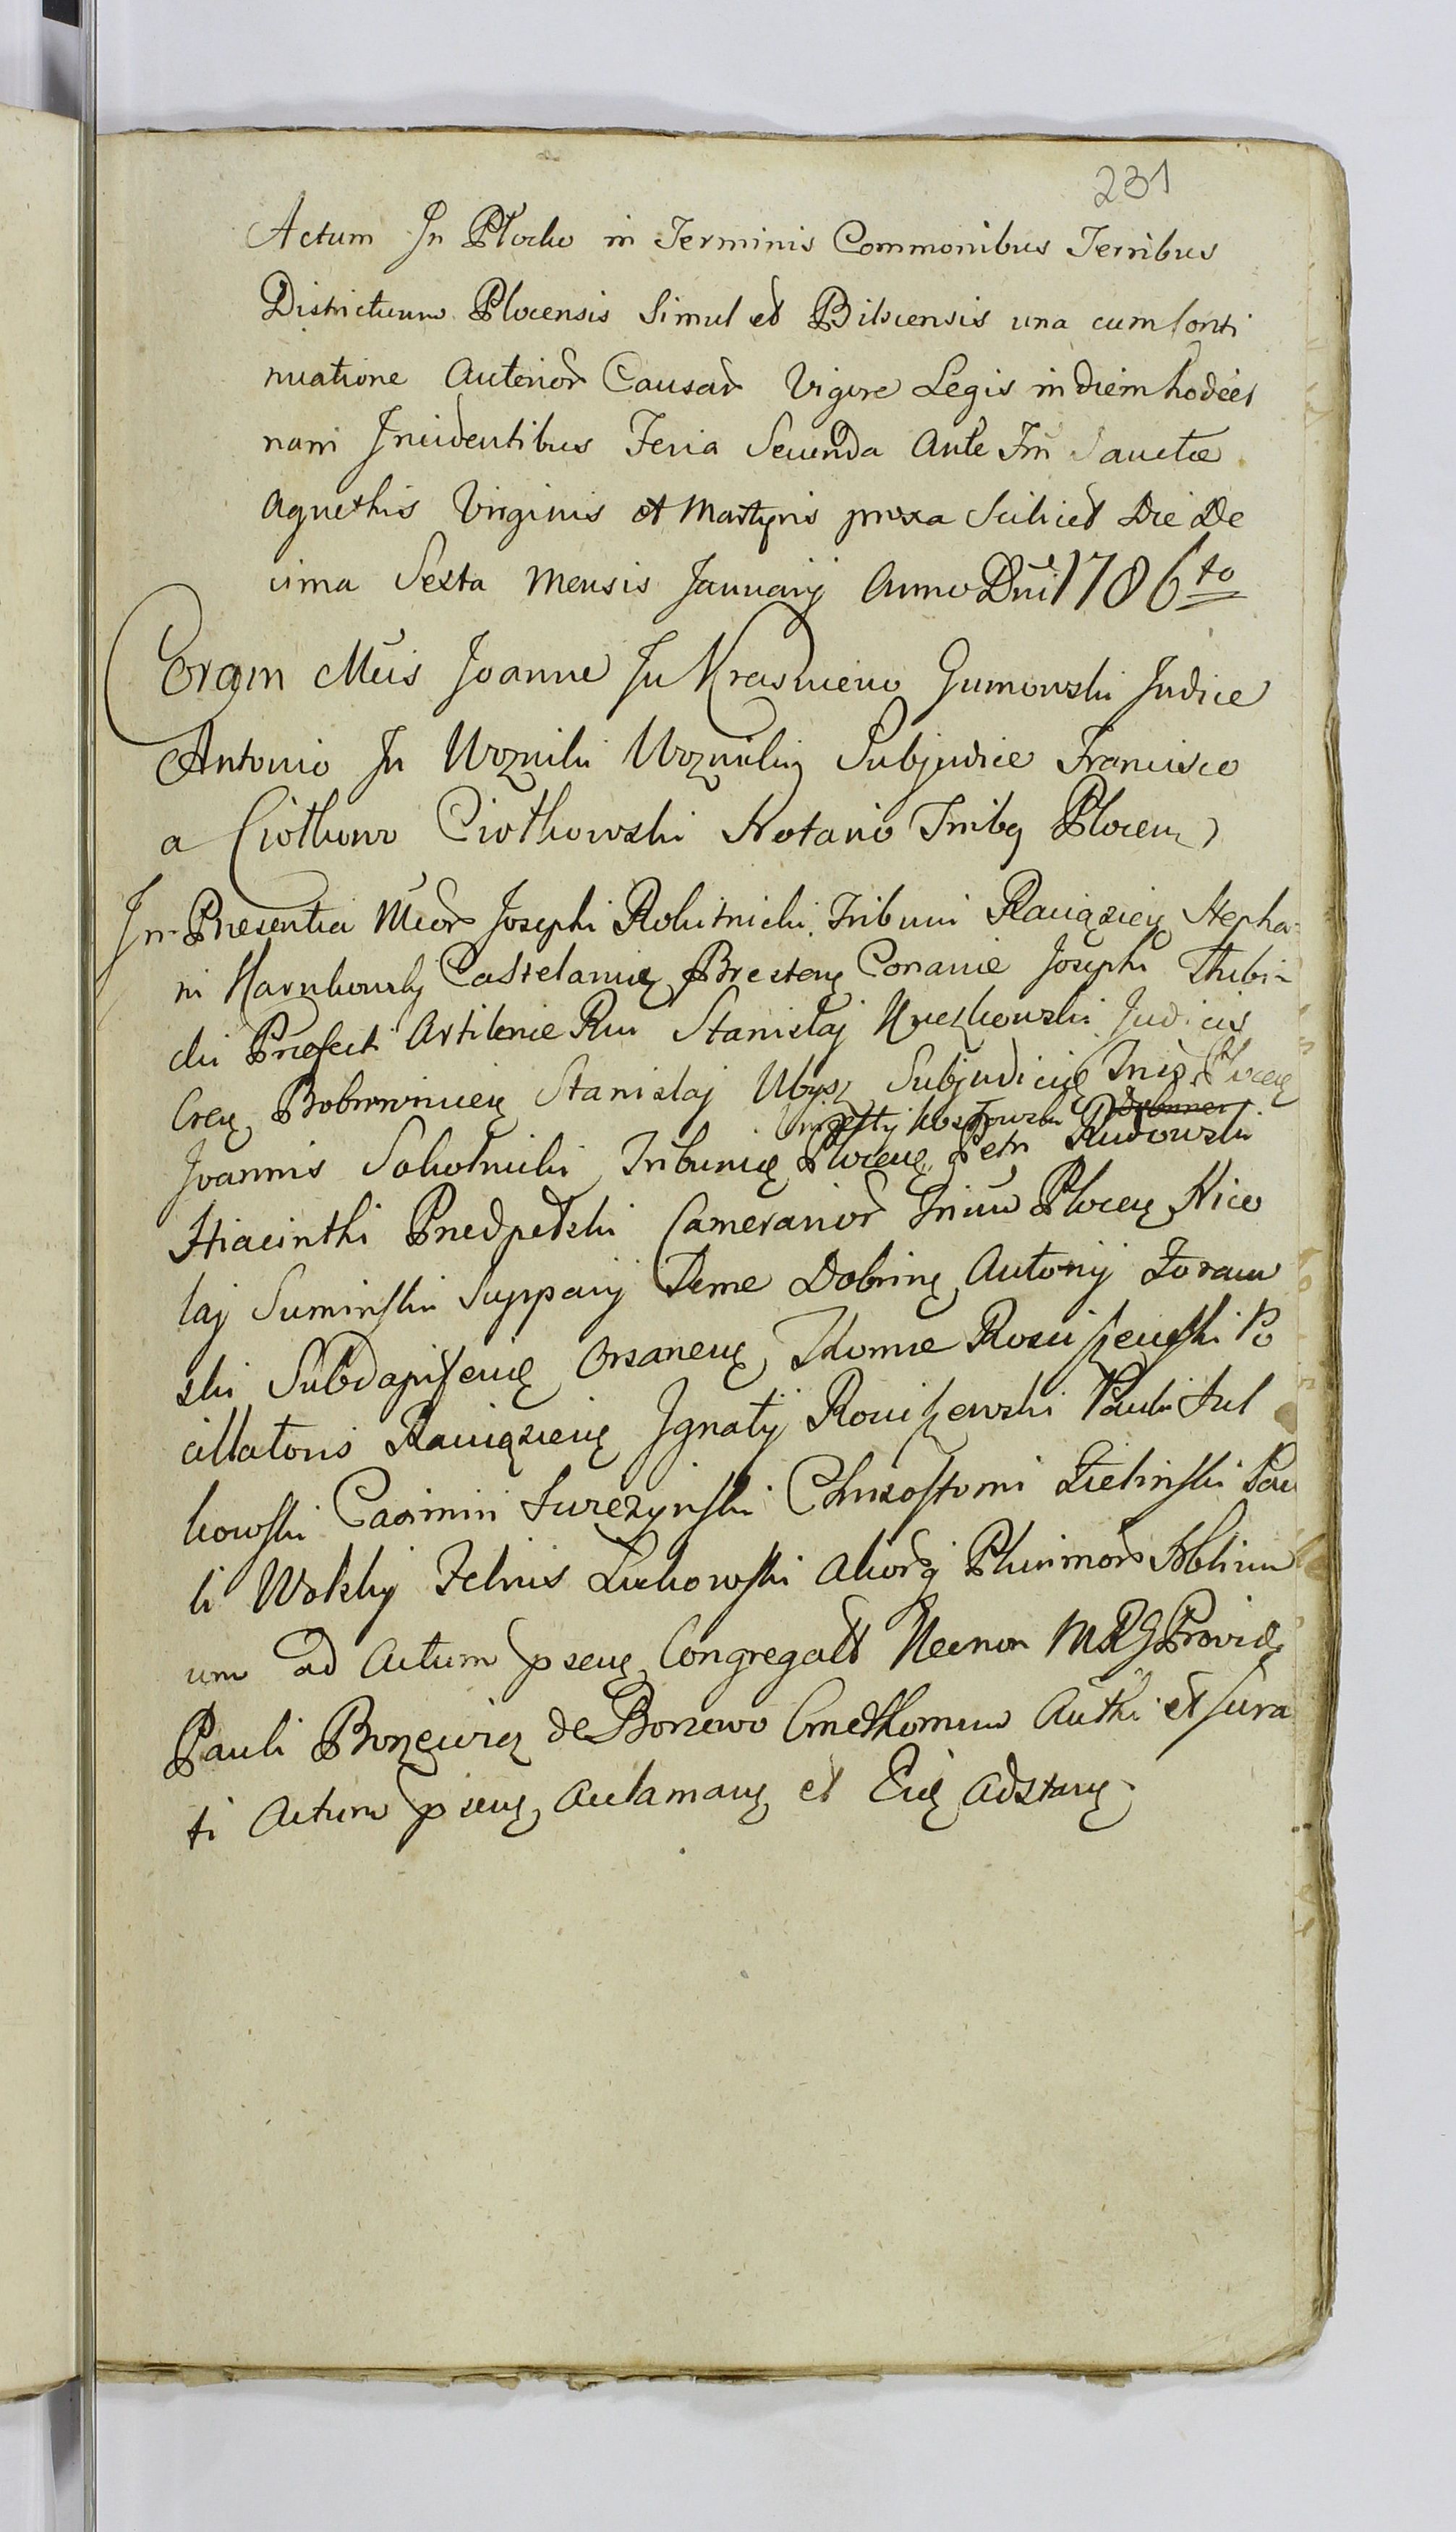 231
Actum In Plocko in Terminis Commonibus Terribus
Districtuum Plocensis Simul et Bilscensis una cum Conti
nuatione Anterior Causar Vigore Legis in diem hodier
nam Incidentibus Feria Secunda Ante Fm Sanctæ
Agnethis Virginis et Martyris proxa Scilicet Die De
cima Sexta Mensis Januarij Anno Dni 1786to
Coram Mcis Joanne In Krasniewo Gumowski Judice
Antonio In Woznili Woznicki Subjudice Francisco
a Ciotkowo Ciotkowski Notario Trribq Plocen
In Presentia Mcor Josephi Rokitnicki Tribuni Raciązien Stepha
ni Karnkowsky Castelanic Bresten Coraniæ Josephi Thubi-
cki Præfecti Artilerie Rni Stanislaj Kuczkowski Judicis
Cren Bobrownicen Stanislaj Ubysz Subjudicic Trris Plocen
Vincentij Kosztowski
Joannis Sokolnicki Tribunic Plocen Petri Rudowski
Hiacinthi Przedpełski Camerarior Trium Plocen Nico
laj Suminski Supparij Terræ Dobrin Antonij Zoraw
ski Subdapifericę Orsanen Thomæ Rosciszewski Po
cillatoris Raciązien Ignatij Rosciszewski Pauli Jul
kowski Casimiri Turczynski Chrizostomi Zielinski Pau
li Wolsky Felicis Lukowski aliorq Plurimor Nobiliu
um ad Actum psen Congregatt Necnon MRG Provid
Pauli Borzewicz de Borzewo Cmethonum Auth et Jura
ti Actum psen Aclaman et Eiq Adstan